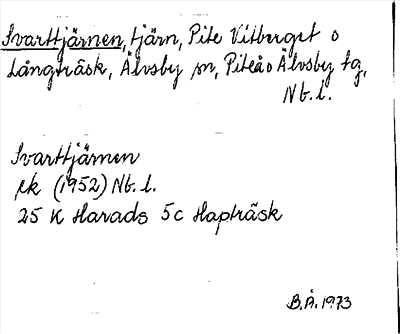 Svarttjärnen, tjärn, Pite Vitberget o
Långträsk, Älvsby sn, Piteå o Älvsby tg,
Nb. l.
Svarttjärnen
ek (1952) Nb. l.
25 K Harads 5c Hapträsk
B.Å. 1973